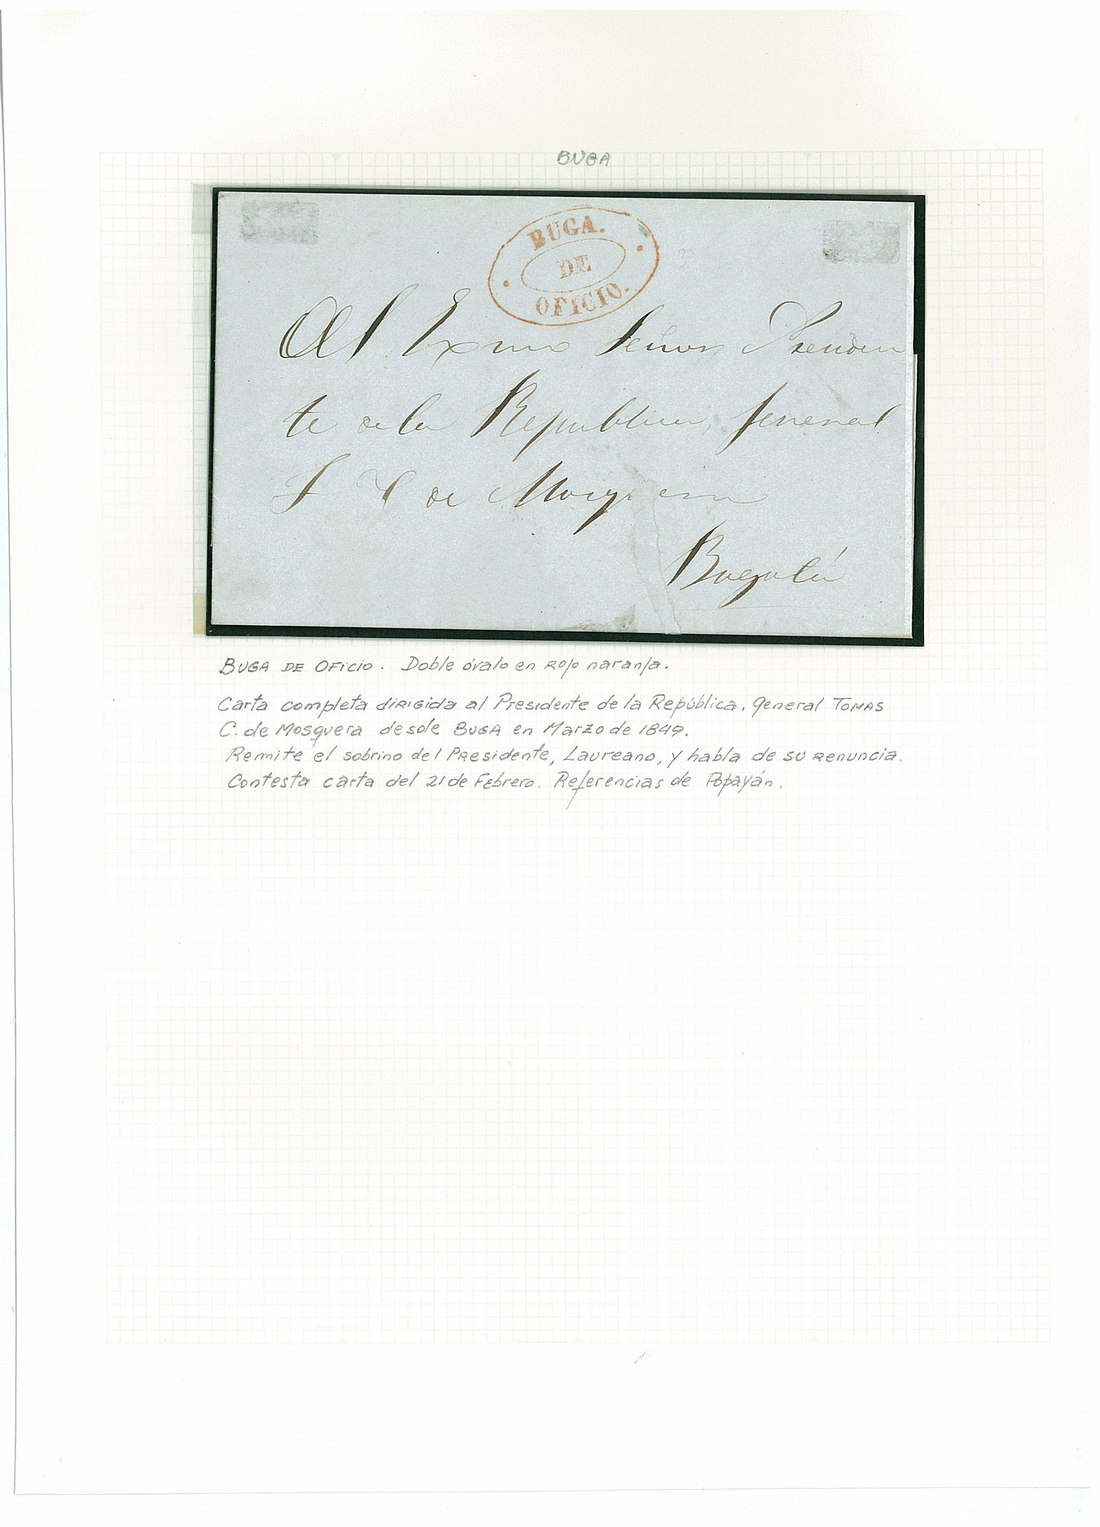 BUGA
BUGA.
DE
OFICIO.
Al Exmo Señor Presiden
te de la Republica, Jeneral
T C de Mosquera
Bogotá
BUGA DE OFICIO. Doble óvalo en rojo naranja.
Carta completa dirigida al Presidente de la República, general TOMAS
C. de Mosquera desde BUGA en Marzo de 1849.
Remite el sobrino del Presidente, Laureano, y habla de su renuncia.
Contesta carta del 21 de Febrero. Referencias de Popayán.